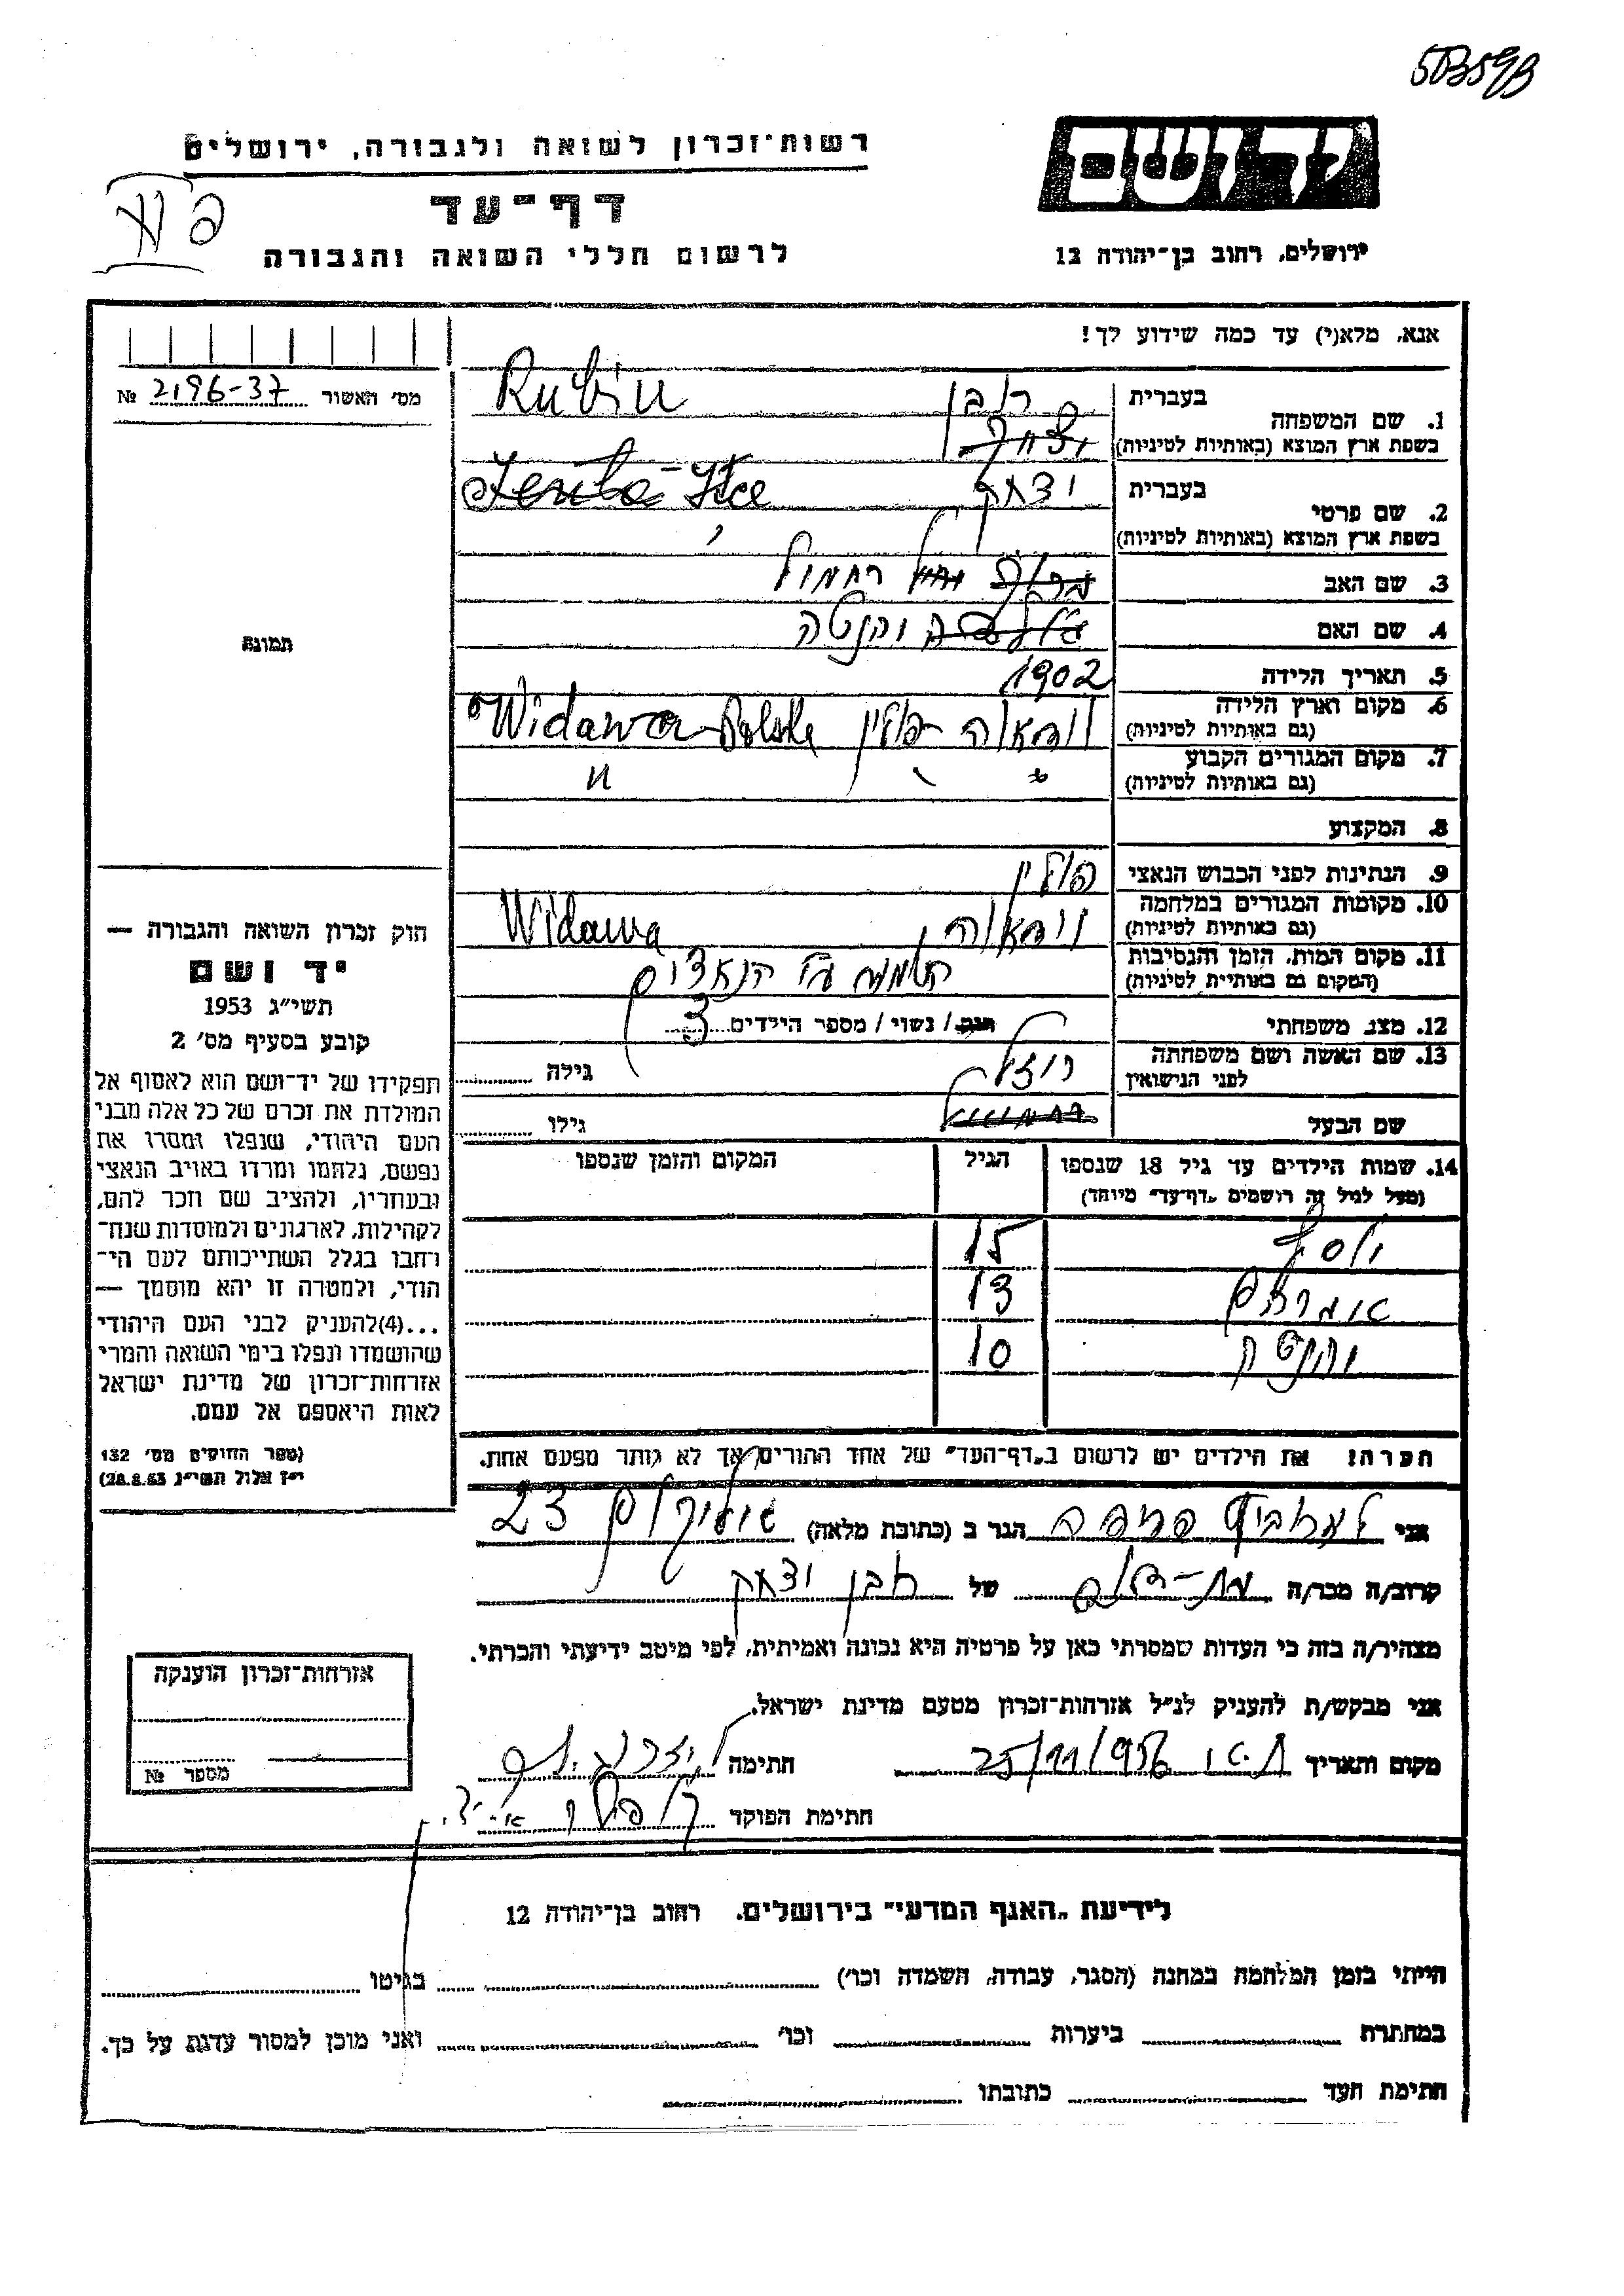 רשות־זכרון לשואה ולגבורה, ירושלים
דף־עד
לרשום חללי השואה והגבורה
יד ושם
ירושלים, רחוב בן־יהודה 12
אנא, מלא(י) עד כמה שידוע לך!
מס' האשור 2196-37 №
1. שם המשפחה
בעברית רובין
בשפת ארץ המוצא (באותיות לטיניות) Rubin
2. שם פרטי
בעברית יצחק
בשפת ארץ המוצא (באותיות לטיניות)
3. שם האב ירחמיאל
4. שם האם
5. תאריך הלידה 1902
6. מקום וארץ הלידה
(גם באותיות לטיניות) פולין Widawa
7. מקום המגורים הקבוע
(גם באותיות לטיניות) "
8. המקצוע
9. הנתינות לפני הכבוש הנאצי פולין
10. מקומות המגורים במלחמה
(גם באותיות לטיניות) Widawa
11. מקום המות, הזמן והנסיבות
(המקום גם באותיית לטיניות) הושמד ע"י הנאצים
12. מצב משפחתי רווק / נשוי / מספר הילדים 3
13. שם האשה ושם משפחתה
לפני הנישואין רוזל גילה
שם הבעל גילו
14. שמות הילדים עד גיל 18 שנספו
(מעל לגיל זה רושמים „דף־עד" מיוחד)
הגיל
המקום והזמן שנספו
יוסף 15
אברהם 13
10
הערה: את הילדים יש לרשום ב„דף־העד" של אחד ההורים אך לא יותר מפעם אחת.
תמונה
חוק זכרון השואה והגבורה —
יד ושם
תשי"ג 1953
קובע בסעיף מס' 2
תפקידו של יד־ושם הוא לאסוף אל
המולדת את זכרם של כל אלה מבני
העם היהודי, שנפלו ומסרו את
נפשם, נלחמו ומרדו באויב הנאצי
ובעוזריו, ולהציב שם וזכר להם,
לקהילות, לארגונים ולמוסדות שנח־
רחבו בגלל השתייכותם לעם הי־
הודי, ולמטרה זו יהא מוסמך —
...(4) להעניק לבני העם היהודי
שהושמדו ונפלו בימי השואה והמרי
אזרחות־זכרון של מדינת ישראל
לאות היאספם אל עמם.
(ספר החוקים מס' 132
י"ז אלול תשי"ג 28.8.53)
אני הגר ב (כתובת מלאה) 23
קרוב/ה מכר/ה של רובין יצחק
מצהיר/ה בזה כי העדות שמסרתי כאן על פרטיה היא נכונה ואמיתית, לפי מיטב ידיעתי והכרתי.
אני מבקש/ת להעניק לנ"ל אזרחות־זכרון מטעם מדינת ישראל.
מקום ותאריך 25/11/956 חתימה
חתימת הפוקד
אזרחות־זכרון הוענקה
מספר №
לידיעת „האגף המדעי" בירושלים. רחוב בן־יהודה 12
הייתי בזמן המלחמה במחנה (הסגר, עבודה, השמדה וכו') בגיטו
במחתרת ביערות וכו' ואני מוכן למסור עדות על כך.
חתימת העד כתובתו